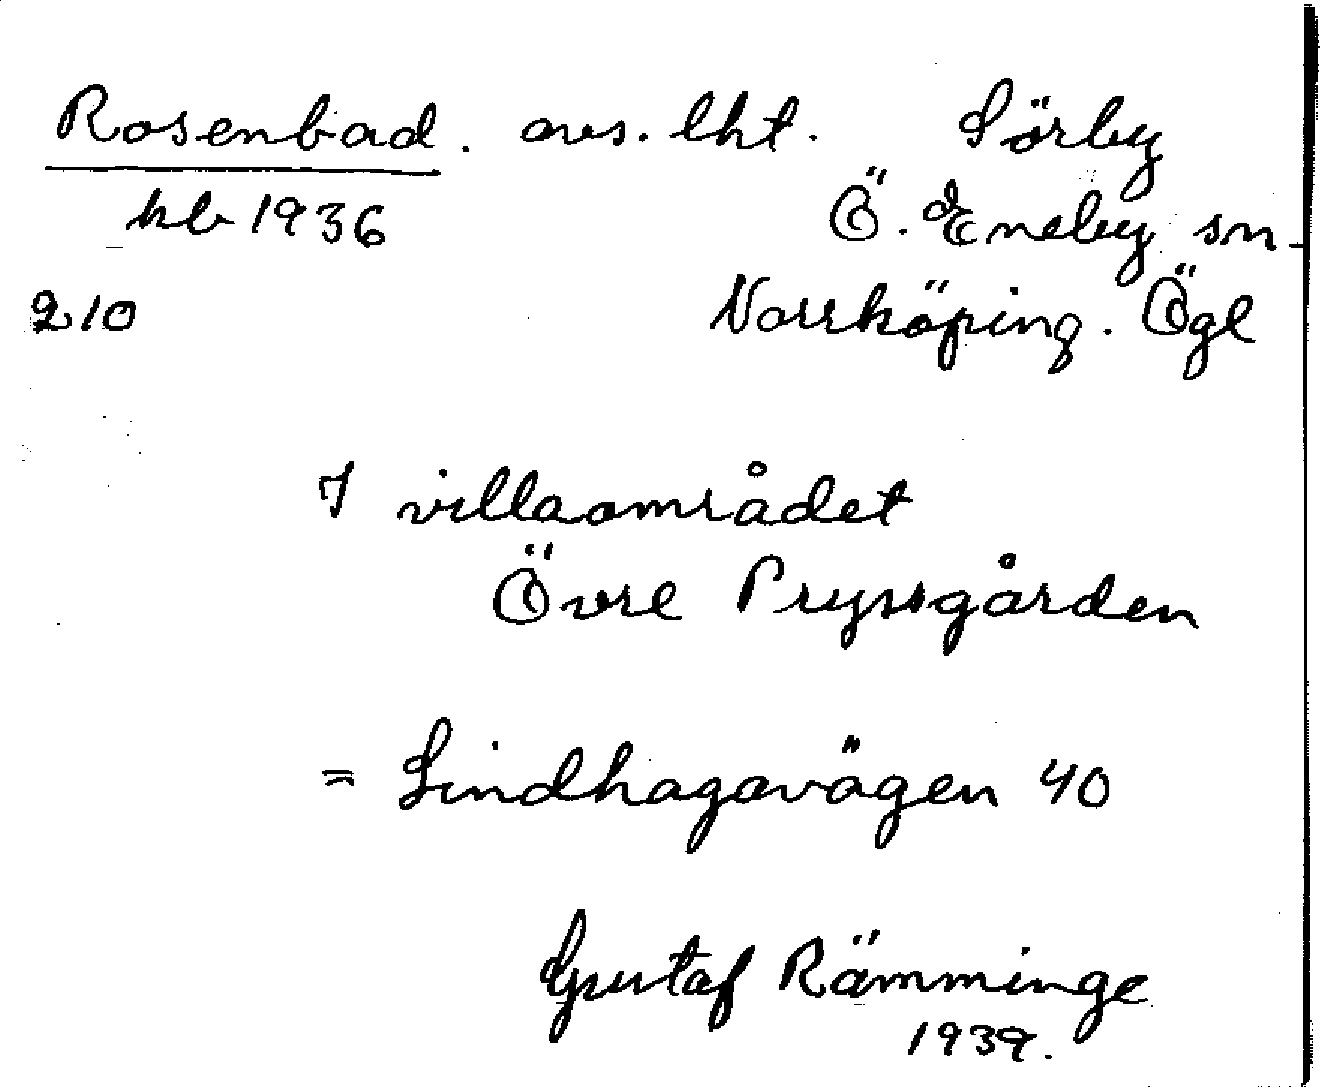 Rosenbad. avs. lht. Sörby
kb 1936 Ö. Eneby sn
210 Norrköping. Ögl
I villaområdet
Övre Prystgården
= Lindhagavägen 40
Gustaf Rämminge
1939.